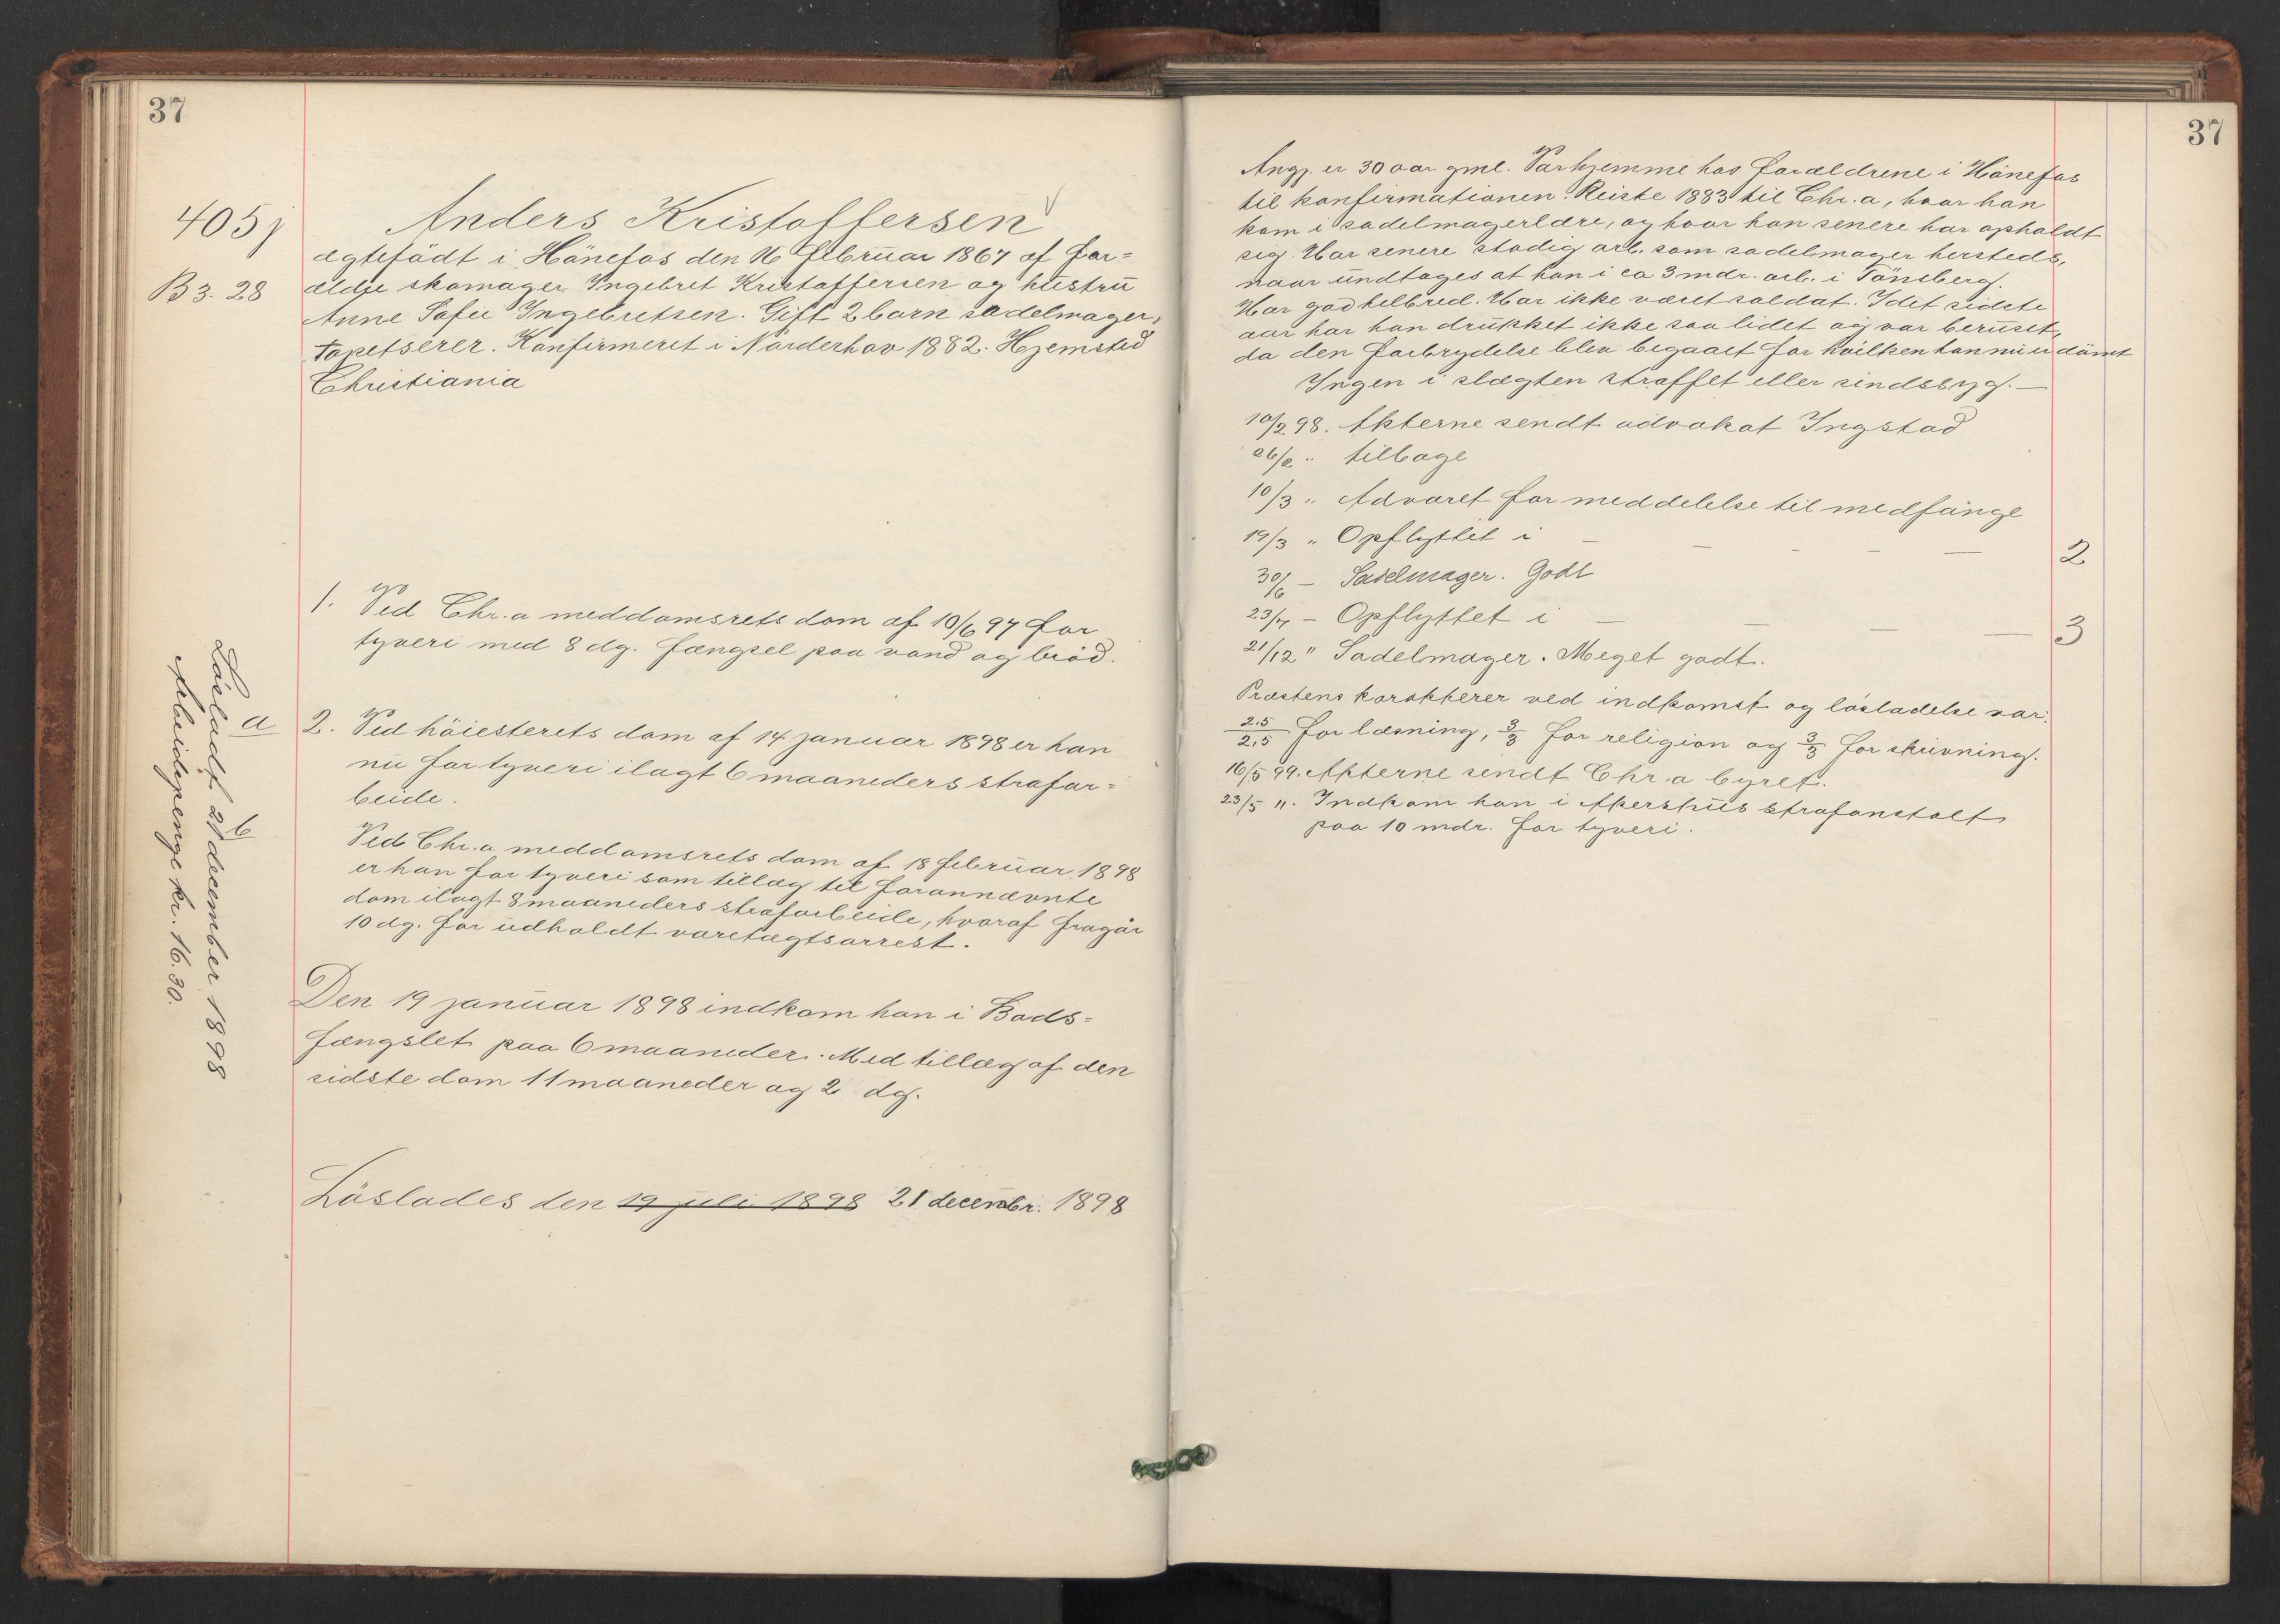 37
405j
B 3. 28
Anders Kristoffersen
ægtefödt i Hönefos den 16 februar 1867 af for=
ældre skomager Ingebret Kristoffersen og hustru
Anne Sofie Ingebretsen. Gift 2 barn sadelmager,
tapetserer. Konfirmeret i Norderhov 1882. Hjemsted
Christiania
1. Ved Chr.a meddomsrets dom af 10/6 97 for
tyveri med 8 dg. fængsel paa vand og bröd.
a
2. Ved höiesterets dom af 14 januar 1898 er han
nu for tyveri ilagt 6 maaneders strafar=
beide.
b
Ved Chr.a meddomsrets dom af 18 februar 1898
er han for tyveri som tillæg til forannævnte
dom ilagt 8 maaneders strafarbeide, hvoraf fragår
10 dg. for udholdt varetægtsarrest.
Den 19 januar 1898 indkom han i Bods=
fængslet paa 6 maaneder. Med tillæg af den
sidste dom 11 maaneder og 2 dg.
Löslades den 19 juli 1898 21 decembr. 1898
Lösladt 21 december 1898
Arbeidspenge kr. 16.30.
37
Angj. er 30 aar gml. Var hjemme hos forældrene i Hönefos
til konfirmationen. Reiste 1883 til Chr.a, hvor han
kom i sadelmagerlære, og hvor han senere har opholdt
sig. Har senere stadig arb. som sadelmager hersteds,
naar undtages at han i ca 3 mdr. arb. i Tönsberg.
Har god helbred. Har ikke været soldat. I det sidste
aar har han drukket ikke saa lidet og var beruset,
da den forbrydelse blev begaaet for hvilken han nu er dömt
Ingen i slægten straffet eller sindssyg. —
10/2 98. Akterne sendt advokat Ingstad
26/2 " tilbage
10/3 " Advaret for meddelelse til medfange
19/3 " Opflyttet i — — — — — 2
30/6 — Sadelmager. Godt
23/7 — Opflyttet i — — — — 3
21/12 " Sadelmager. Meget godt.
Præstens karakterer ved indkomst og lösladelse var:
2.5/2.5 for læsning, 3/3 for religion og 3/3 for skrivning.
16/5 99. Akterne sendt Chr.a byret.
23/5 ". Indkom han i Akershus strafanstalt
paa 10 mdr. for tyveri.